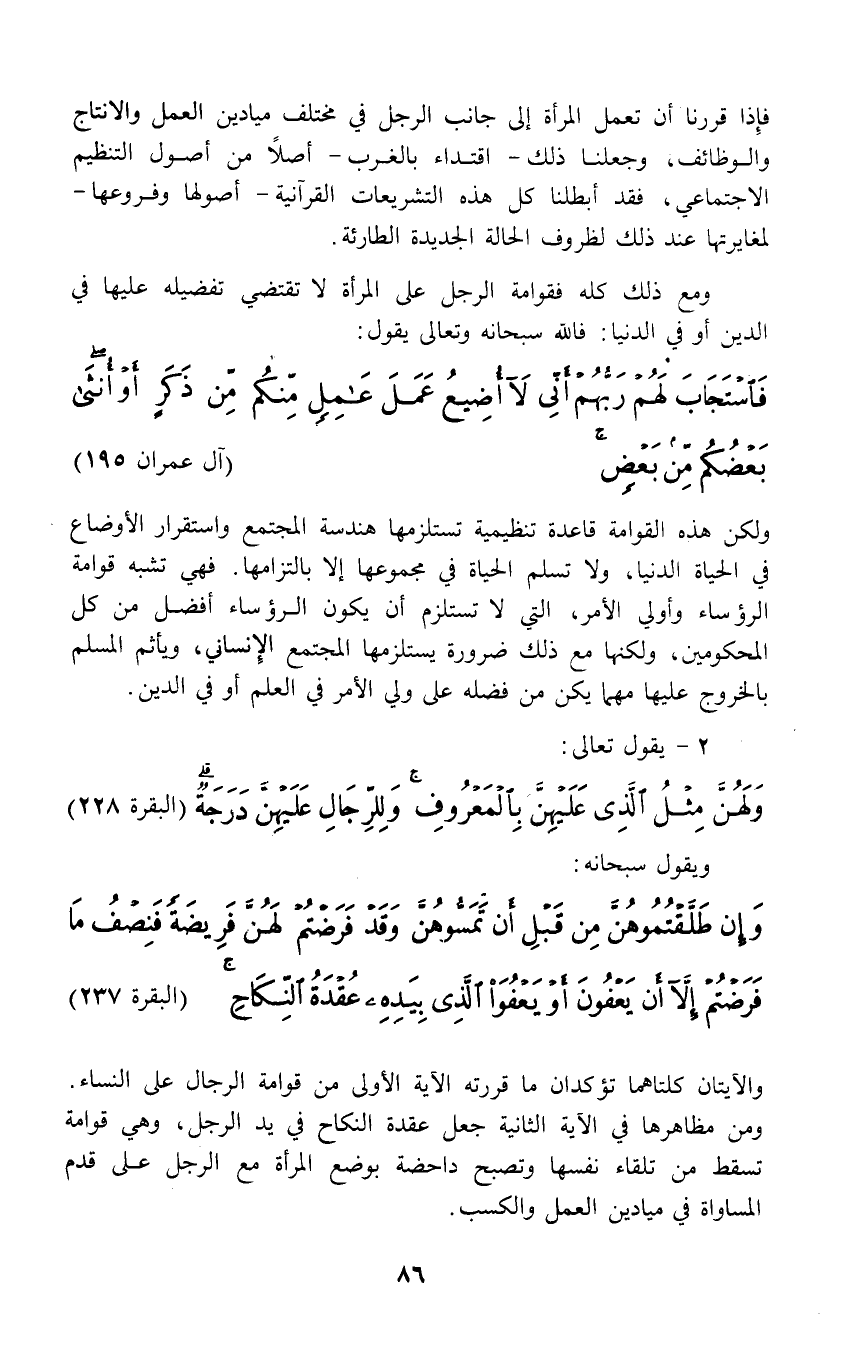 فإذا قررنا أن تعمل المرأة إلى جانب الرجل في مختلف ميادين العمل والانتاج
والوظائف، وجعلنا ذلك - اقتداء بالغرب - أصلاً من أصول التنظيم
الاجتماعي، فقد أبطلنا كل هذه التشريعات القرآنية - أصولها وفروعها -
لمغايرتها عند ذلك لظروف الحالة الجديدة الطارئة.
ومع ذلك كله فقوامة الرجل على المرأة لا تقتضي تفضيله عليها في
الدين أو في الدنيا: فالله سبحانه وتعالى يقول:
فَٱسْتَجَابَ لَهُمْ رَبُّهُمْ أَنِّى لَآ أُضِيعُ عَمَلَ عَـٰمِلٍ مِّنكُم مِّن ذَكَرٍ أَوْ أُنثَىٰ ۖ
بَعْضُكُم مِّنۢ بَعْضٍ ۚ (آل عمران ١٩٥)
ولكن هذه القوامة قاعدة تنظيمية تستلزمها هندسة المجتمع واستقرار الأوضاع
في الحياة الدنيا، ولا تسلم الحياة في مجموعها إلا بالتزامها. فهي تشبه قوامة
الرؤساء وأولي الأمر، التي لا تستلزم أن يكون الرؤساء أفضل من كل
المحكومين، ولكنها مع ذلك ضرورة يستلزمها المجتمع الإنساني، ويأثم المسلم
بالخروج عليها مهما يكن من فضله على ولي الأمر في العلم أو في الدين.
٢ - يقول تعالى:
وَلَهُنَّ مِثْلُ ٱلَّذِى عَلَيْهِنَّ بِٱلْمَعْرُوفِ ۚ وَلِلرِّجَالِ عَلَيْهِنَّ دَرَجَةٌ ۗ (البقرة ٢٢٨)
ويقول سبحانه:
وَإِن طَلَّقْتُمُوهُنَّ مِن قَبْلِ أَن تَمَسُّوهُنَّ وَقَدْ فَرَضْتُمْ لَهُنَّ فَرِيضَةً فَنِصْفُ مَا
فَرَضْتُمْ إِلَّآ أَن يَعْفُونَ أَوْ يَعْفُوَا۟ ٱلَّذِى بِيَدِهِۦ عُقْدَةُ ٱلنِّكَاحِ ۚ (البقرة ٢٣٧)
والآيتان كلتاهما تؤكدان ما قررته الآية الأولى من قوامة الرجال على النساء.
ومن مظاهرها في الآية الثانية جعل عقدة النكاح في يد الرجل، وهي قوامة
تسقط من تلقاء نفسها وتصبح داحضة بوضع المرأة مع الرجل على قدم
المساواة في ميادين العمل والكسب.
٨٦